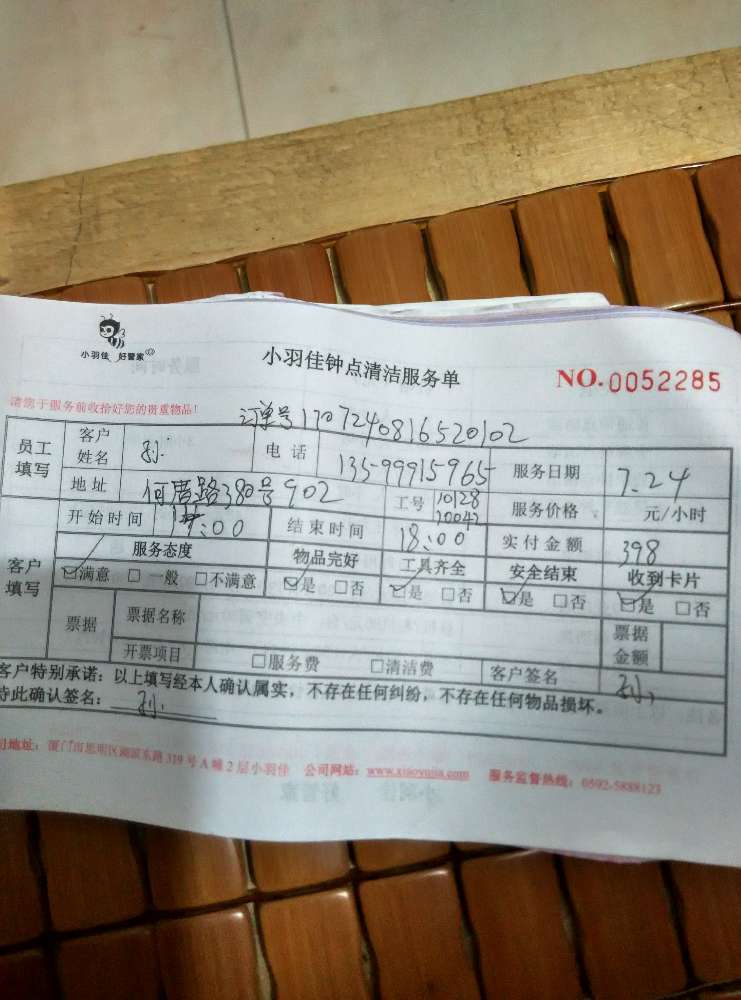 小羽佳 好管家
小羽佳钟点清洁服务单
NO.0052285
请您于服务前收拾好您的贵重物品!
订单号1707240816520102
员工填写 客户姓名 孙 电话 13599915965 服务日期 7.24
地址 何厝路380号902 工号 10128 20042 服务价格 元/小时
开始时间 :00 结束时间 18:00 实付金额 398
客户填写 服务态度 物品完好 工具齐全 安全结束 收到卡片
☑满意 □一般 □不满意 ☑是 □否 ☑是 □否 ☑是 □否 ☑是 □否
票据 票据名称 票据金额
开票项目 □服务费 □清洁费 客户签名 孙
客户特别承诺:以上填写经本人确认属实,不存在任何纠纷,不存在任何物品损坏。
特此确认签名:孙
司地址:厦门市思明区湖滨东路319号A幢2层小羽佳 公司网站:www.xiaoyujia.com 服务监督热线:0592-5888123